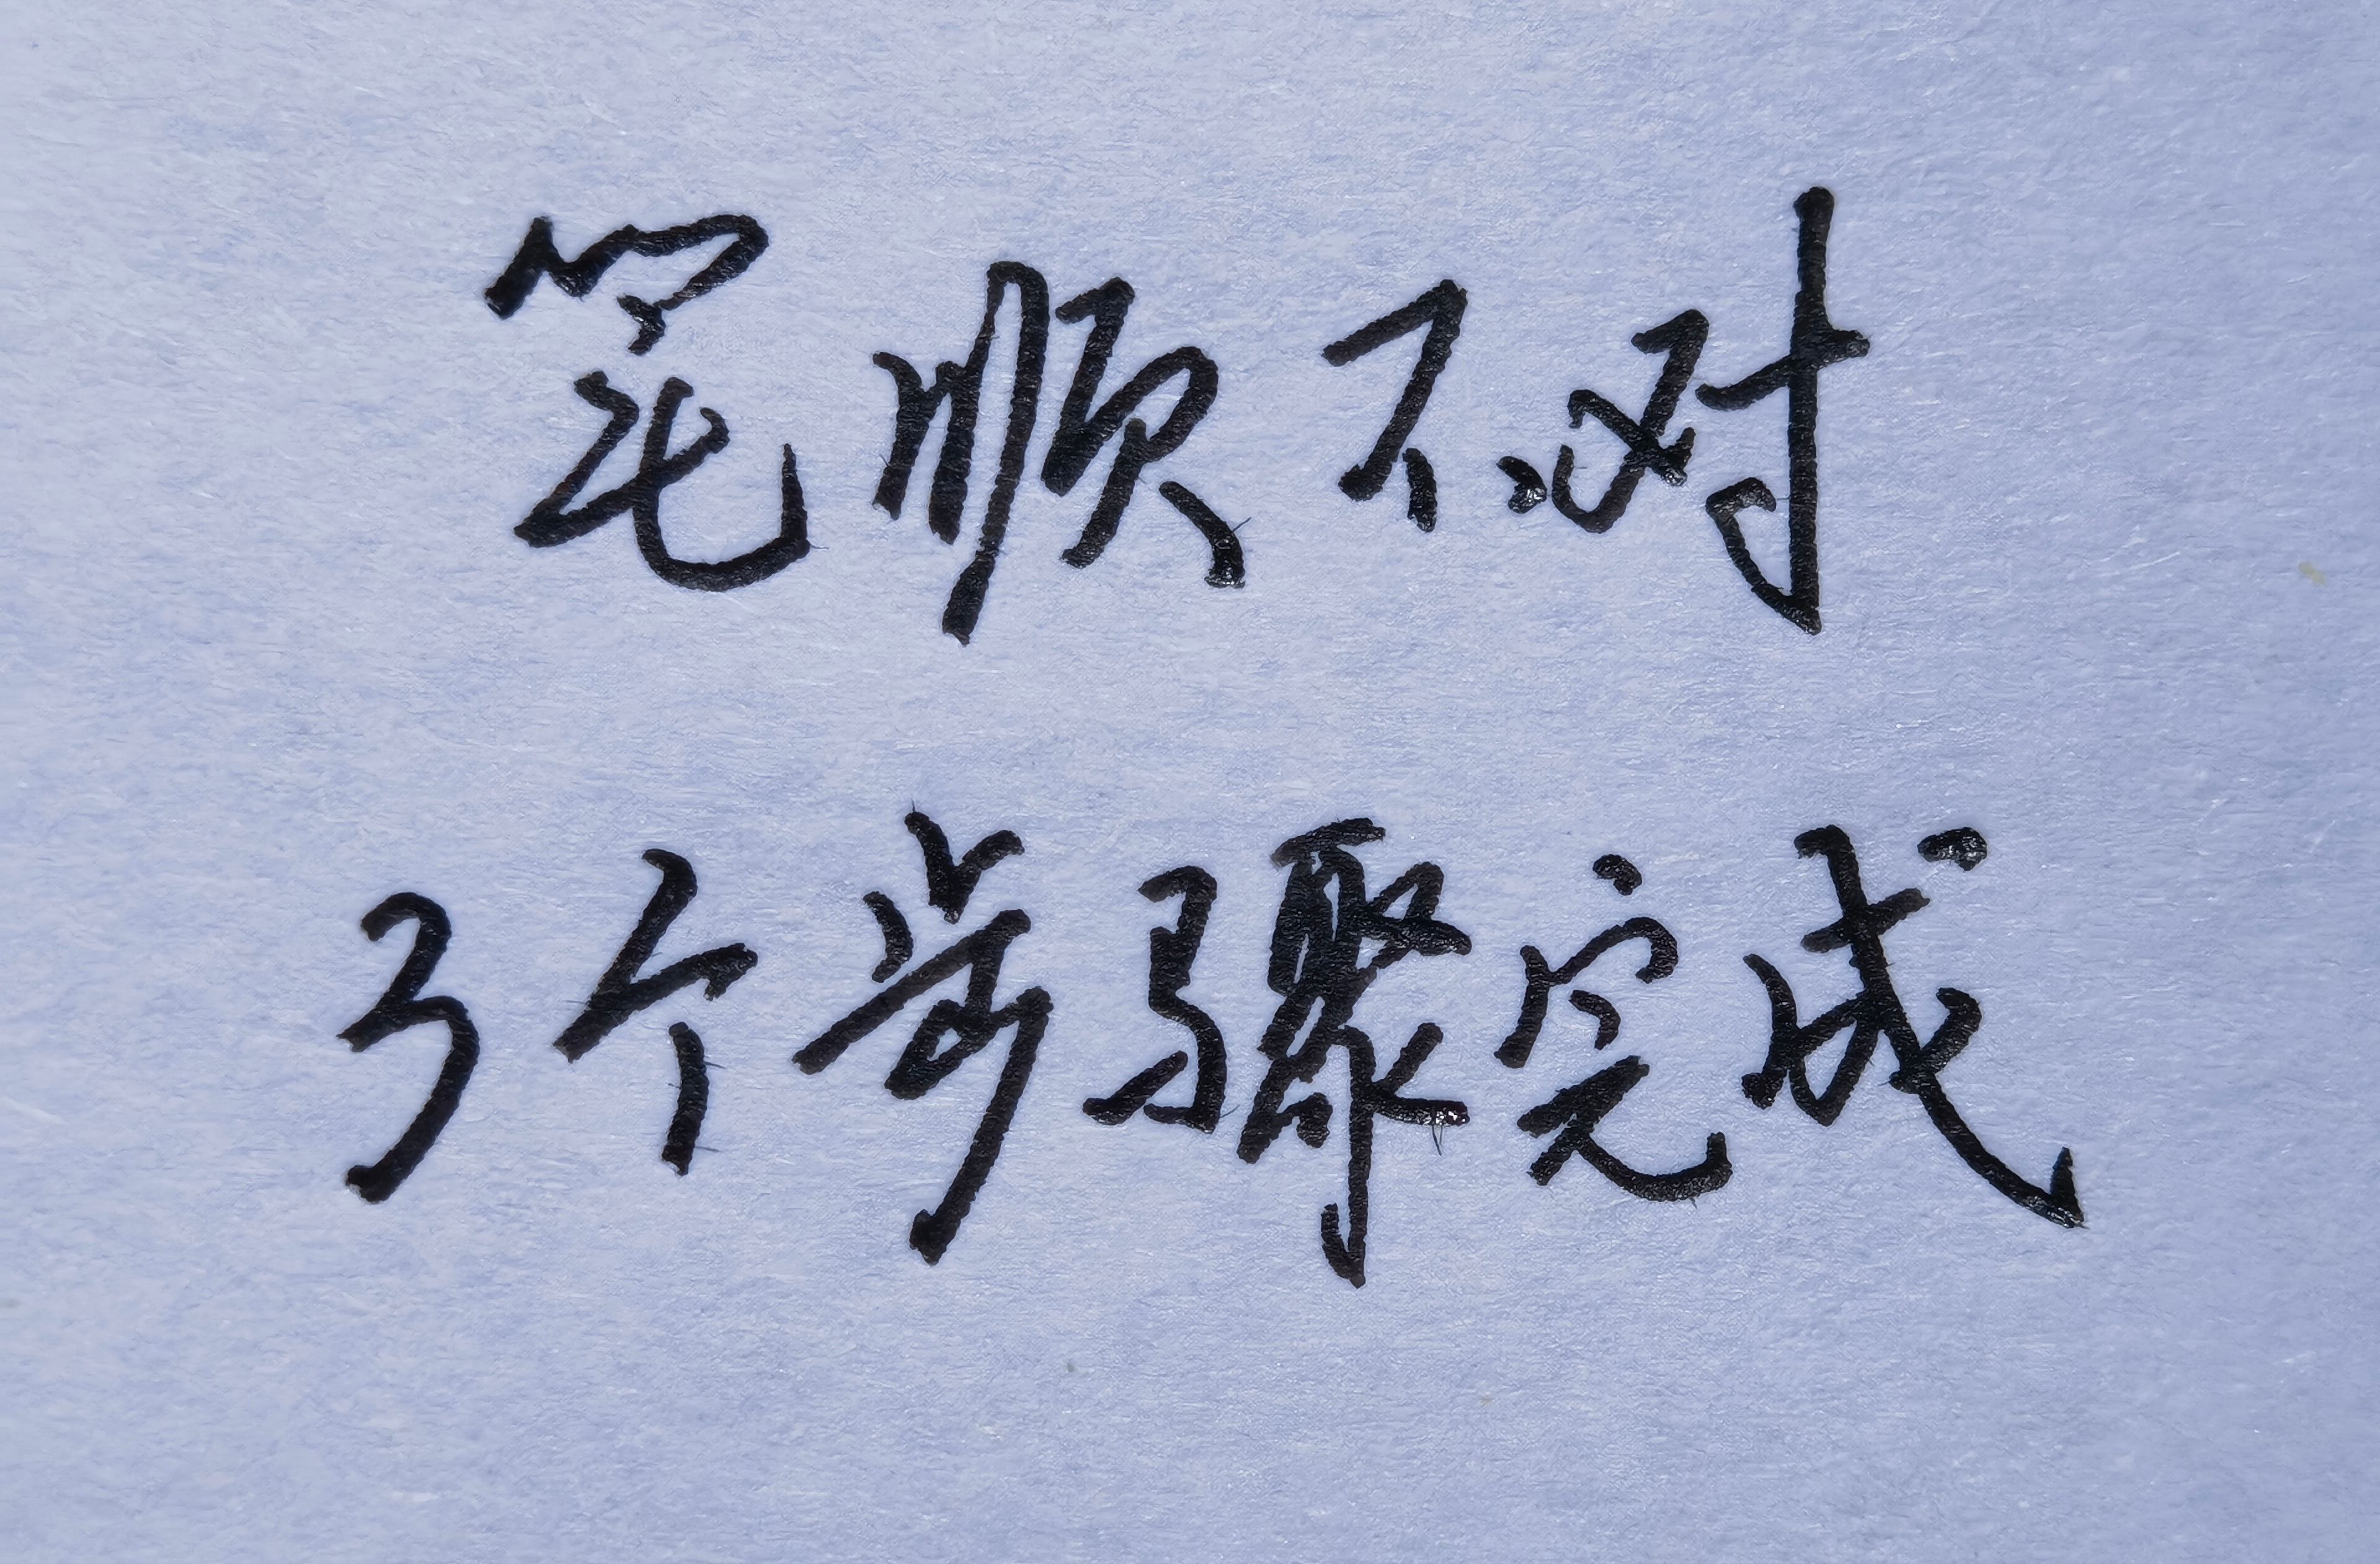 笔顺不对
3个步骤完成